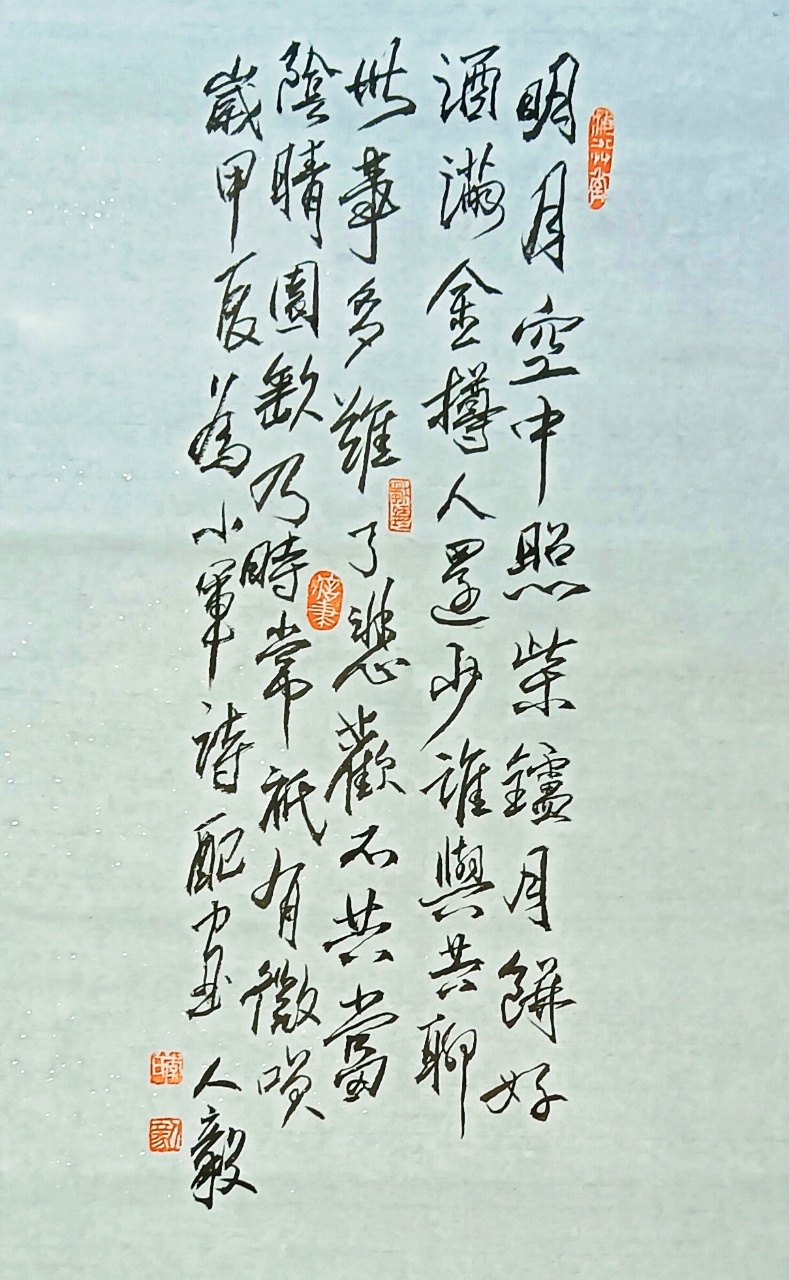 明月空中照紫鑪月餅好
酒滿金樽人還少誰與共聊
世事多難了悲歡不共當
陰晴圓缺乃時常祇有微
歲甲夏為小軍詩配 人毅